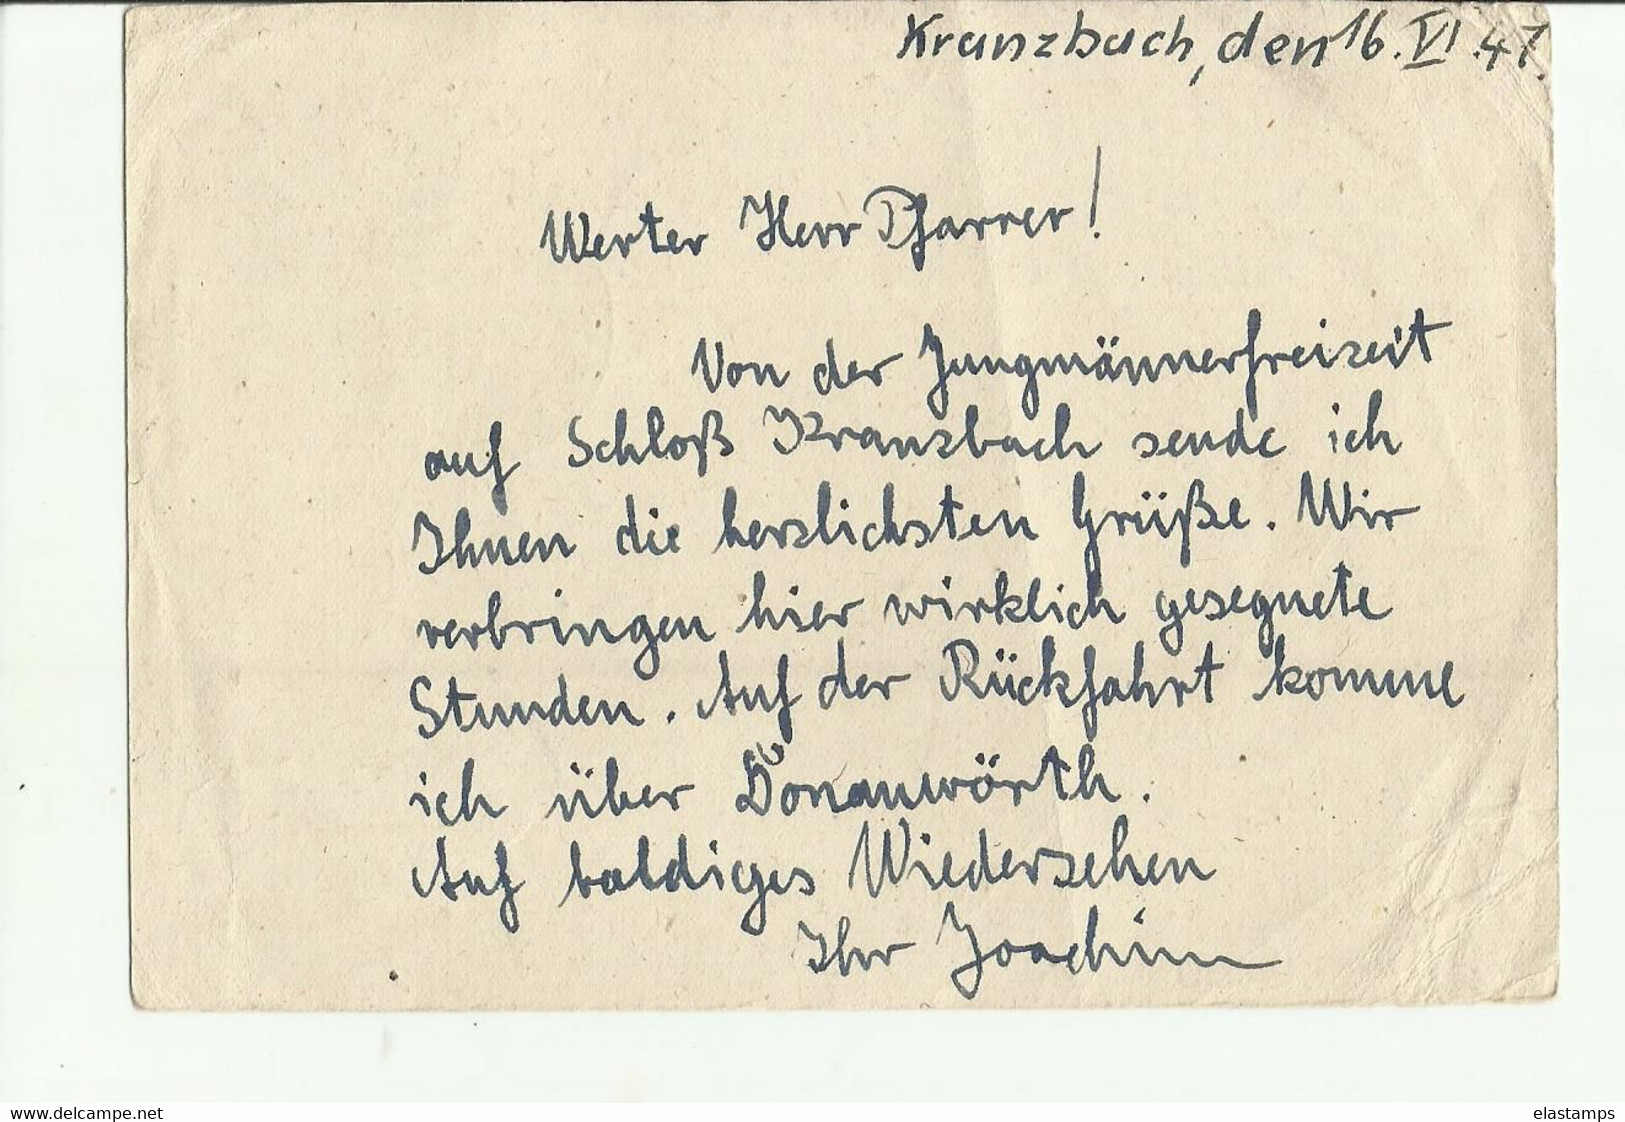 Kranzbach, den 16. VI. 47.
Werter Herr Pfarrer!
Von der Jungmännerfreizeit
auf Schloß Kranzbach sende ich
Ihnen die herzlichsten Grüße. Wir
verbringen hier wirklich gesegnete
Stunden. Auf der Rückfahrt komme
ich über Donauwörth.
Auf baldiges Wiedersehen
Ihr Joachim
www.delcampe.net
elastamps